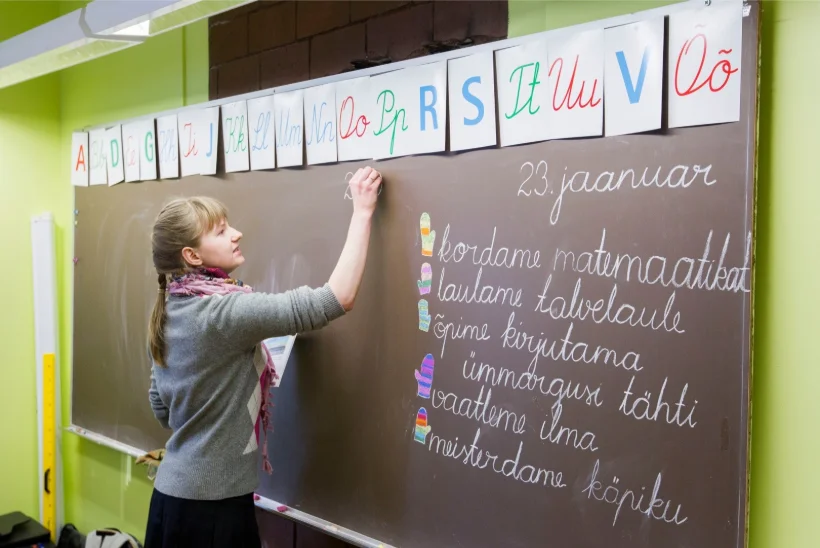 A
D
G
J
Kk
Ll
Mm
Nn
Oo
Pp
R
S
Tt
Uu
V
Õõ
2
23. jaanuar
kordame matemaatikat
laulame talvelaule
õpime kirjutama
ümmargusi tähti
vaatleme ilma
meisterdame käpiku